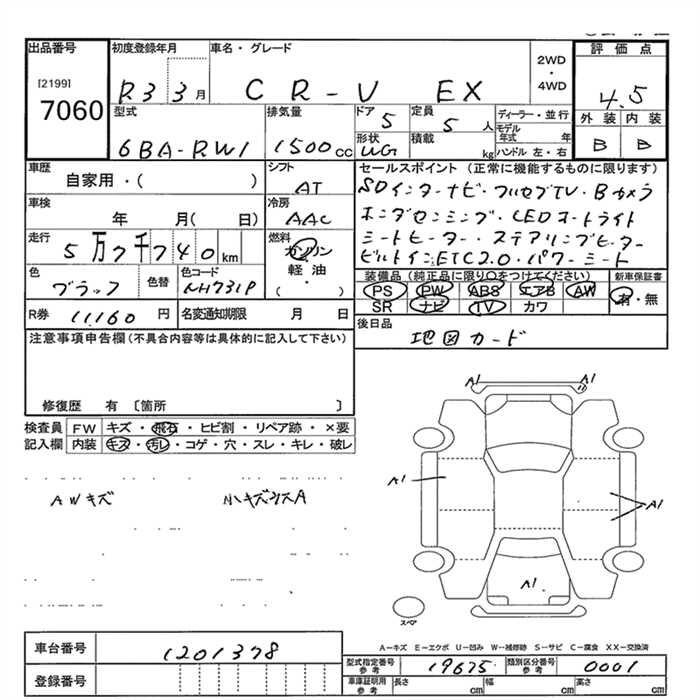 出品番号 初度登録年月 車名・グレード 評価点
[2199]
7060
R3 3月 CR-V EX 2WD・4WD 4.5
型式 排気量 ドア 5 定員 5人 ディーラー・並行 外装 内装
6BA-RW1 1500cc 形状 WG 積載 kg モデル年式 年 ハンドル 左・右 B B
車歴 自家用・( ) シフト AT セールスポイント (正常に機能するものに限ります)
SDインターナビ・フルセグTV・Bカメラ
車検 年 月( 日) 冷房 AAC ホンダセンシング・LEDオートライト
走行 5万7千740km 燃料 ガソリン シートヒーター・ステアリングヒーター
軽油 ビルトインETC2.0・パワーシート
( )
色 ブラック 色替 色コード NH731P 装備品 (純正品に限り○をつけてください) 新車保証書
PS PW ABS エアB AW 有・無
SR ナビ TV カワ
R券 11160円 名変通知期限 月 日 後日品
地図カード
注意事項申告欄 (不具合内容等は具体的に記入して下さい)
修復歴 有 〔箇所 〕
検査員 FW キズ・飛石・ヒビ割・リペア跡・×要
記入欄 内装 キズ・汚レ・コゲ・穴・スレ・キレ・破レ
AWキズ 小キズウスA
A1 A1
A1 A1
A1
スペア
A－キズ E－エクボ U－凹み W－補修跡 S－サビ C－腐食 XX－交換済
車台番号 1201378
型式指定番号 参考 19675 類別区分番号 参考 0001
登録番号 車庫証明用 参考 長さ cm 幅 cm 高さ cm